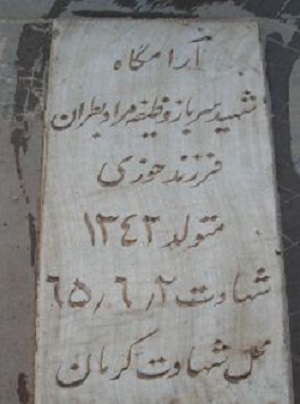 آرامگاه
شهید سرباز وظیفه مراد بطران
فرزند حوزی
متولد ۱۳۴۳
شهادت ۶۵٫۶٫۲
محل شهادت کرمان